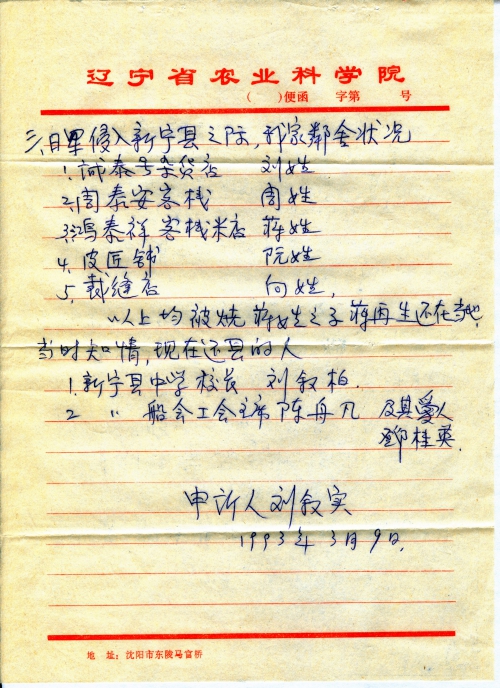 辽宁省农业科学院
( )便函 字第 号
三、日军侵入新宁县之际,邻家邻舍状况
1. 诚泰号杂货店 刘姓
2. 周泰安客栈 周姓
3. 鸿泰祥客栈米店 蒋姓
4. 皮匠铺 阮姓
5. 裁缝店 向姓,
以上均被烧 蒋姓之子蒋再生还在当地
当时知情,现在还县的人
1. 新宁县中学校长 刘叙柏.
2 〃 船会工会主席 陈舟凡 及其爱人
邓桂英.
申诉人刘叙实
1993年3月9日.
地 址:沈阳市东陵马官桥